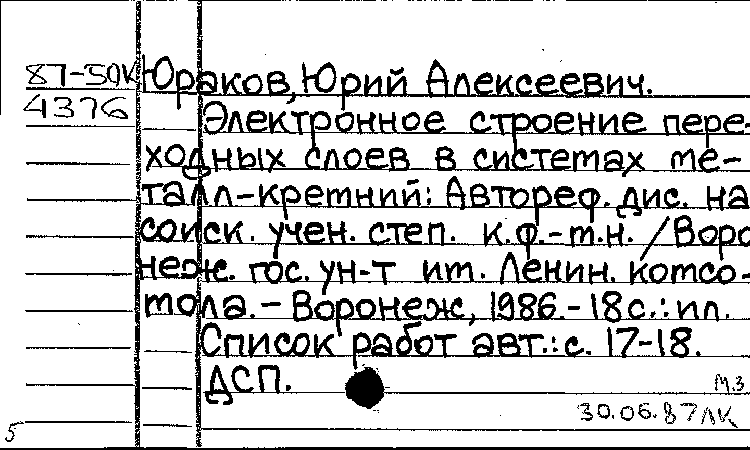 87-50К Юраков, Юрий Алексеевич.
4376 Электронное строение пере-
ходных слоев в системах ме-
талл-кретний: Автореф. дис. на
соиск. учен. степ. к.ф.-т.н. /Воро
неж. гос. ун-т ит. Ленин. котсо-
тола. – Воронеж, 1986. – 18 с.: ил.
Список работ авт.: с. 17-18.
ДСП.
М.З
30.06.87ЛК
5